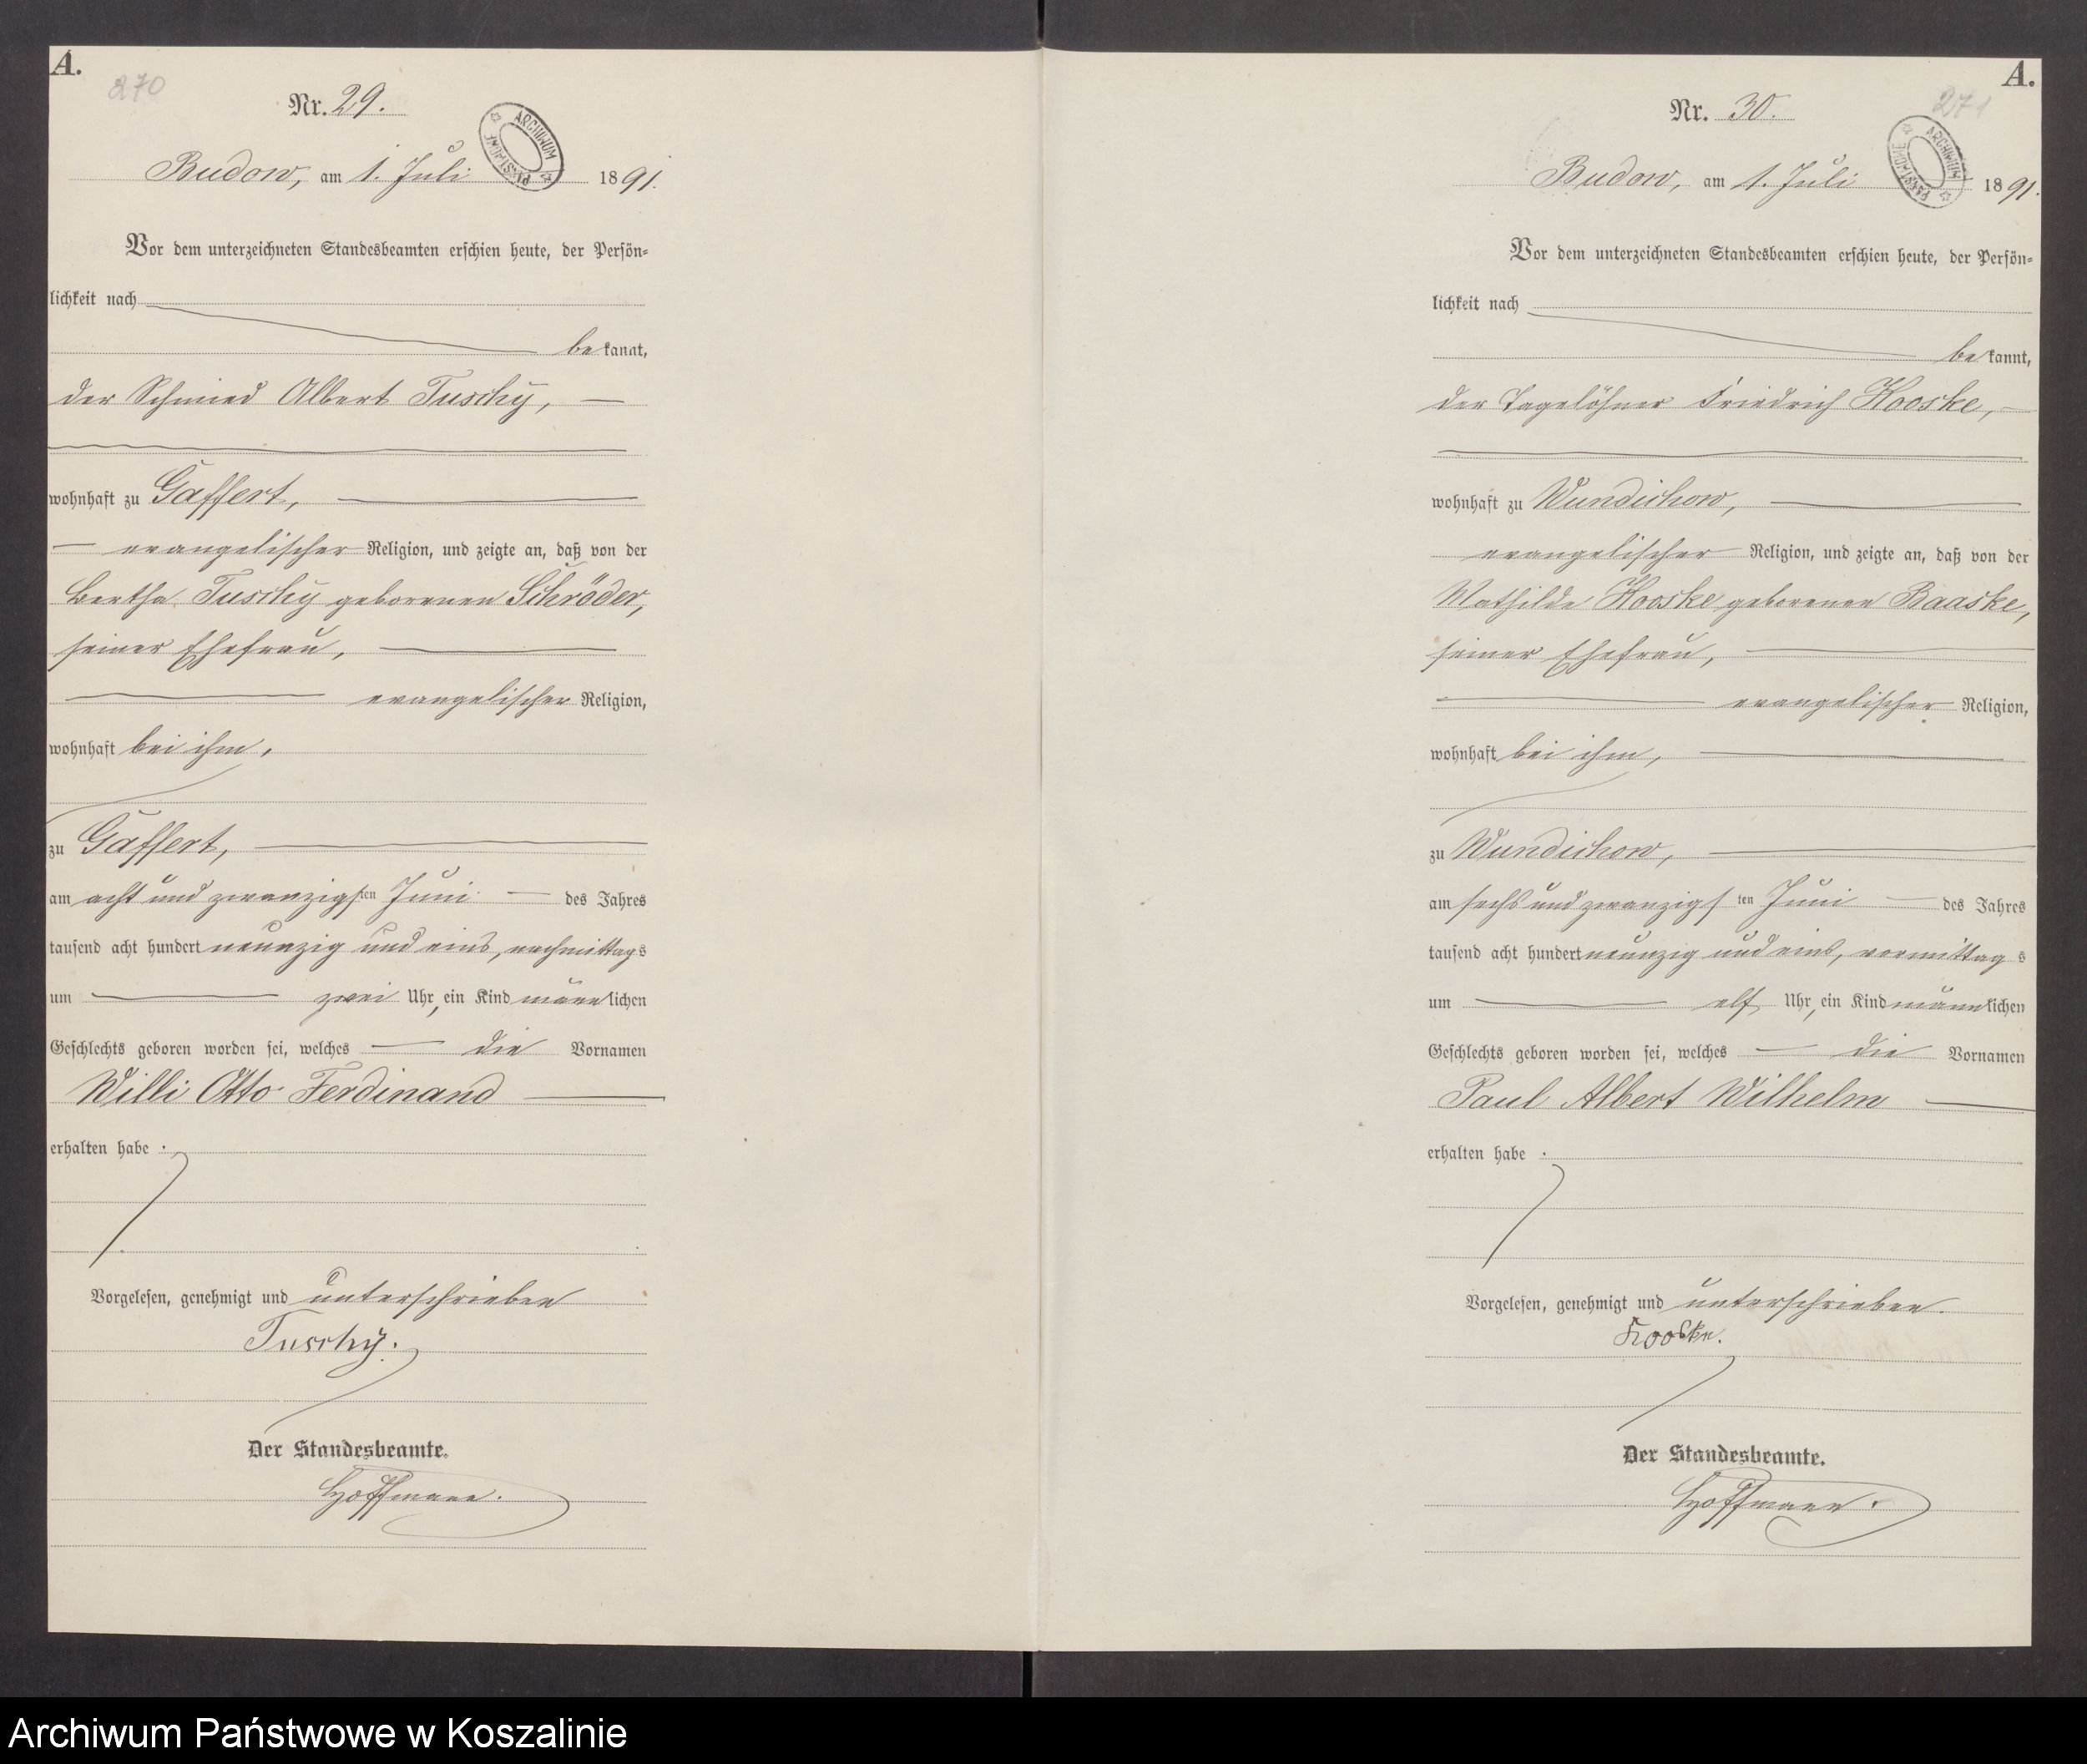 A.
270
Nr. 29.
ARCHIWUM PAŃSTWOWE
Budow, am 1. Juli 1891.
Vor dem unterzeichneten Standesbeamten erschien heute, der Persön-
lichkeit nach
bekannt,
der Schmied Albert Tuschy,
wohnhaft zu Gaffert,
evangelischer Religion, und zeigte an, daß von der
Bertha Tuschy geborenen Schröder,
seiner Ehefrau,
evangelischer Religion,
wohnhaft bei ihm,
zu Gaffert,
am acht und zwanzigsten Juni des Jahres
tausend acht hundert neunzig und eins, nachmittags
um zwei Uhr, ein Kind männlichen
Geschlechts geboren worden sei, welches die Vornamen
Willi Otto Ferdinand
erhalten habe.
Vorgelesen, genehmigt und unterschrieben
Tuschy.
Der Standesbeamte.
Hoffmann.
A.
271
Nr. 30.
ARCHIWUM PAŃSTWOWE
Budow, am 1. Juli 1891.
Vor dem unterzeichneten Standesbeamten erschien heute, der Persön-
lichkeit nach
bekannt,
der Tagelöhner Friedrich Kooske,
wohnhaft zu Wundichow,
evangelischer Religion, und zeigte an, daß von der
Mathilde Kooske geborenen Baaske,
seiner Ehefrau,
evangelischer Religion,
wohnhaft bei ihm,
zu Wundichow,
am sechs und zwanzigsten Juni des Jahres
tausend acht hundert neunzig und eins, vormittags
um elf Uhr, ein Kind männlichen
Geschlechts geboren worden sei, welches die Vornamen
Paul Albert Wilhelm
erhalten habe.
Vorgelesen, genehmigt und unterschrieben.
Kooske.
Der Standesbeamte.
Hoffmann.
Archiwum Państwowe w Koszalinie